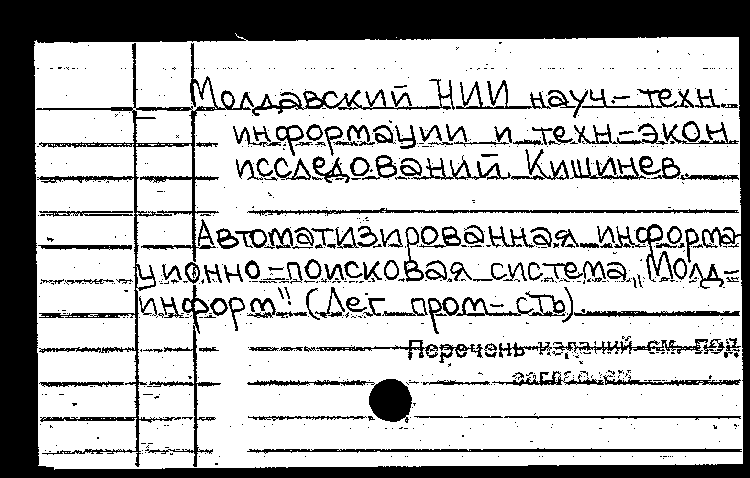 Молдавский НИИ науч.-техн.
информации и техн.-экон.
исследований. Кишинев.
Автоматизированная информа-
ционно-поисковая система „Молд-
информ" (Лег. пром-сть).
Перечень изданий см. под
заглавием